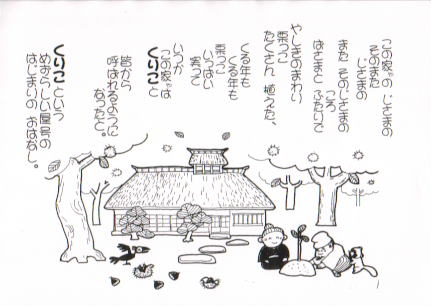 この家のじさまの
そのまた
じさまの
また そのじさまの
ころ
ばさまと ふたりで
やしきのまわり
栗っこ
たくさん 植えた、
くる年も
くる年も
栗っこ
いっぱい
実って
いつか
この家は
くりこと
皆から
呼ばれるように
なったと。
くりこという
めずらしい屋号の
はじまりの おはなし。